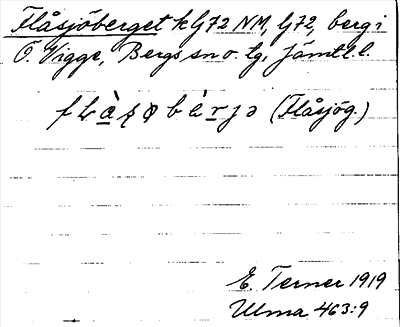 Flåsjöberget k G72 NM, G72, berg i
Ö. Vigge, Bergs sn o. tg, Jämtl. l.
(Flåsjög.)
E. Terner 1919
Ulma 463:9